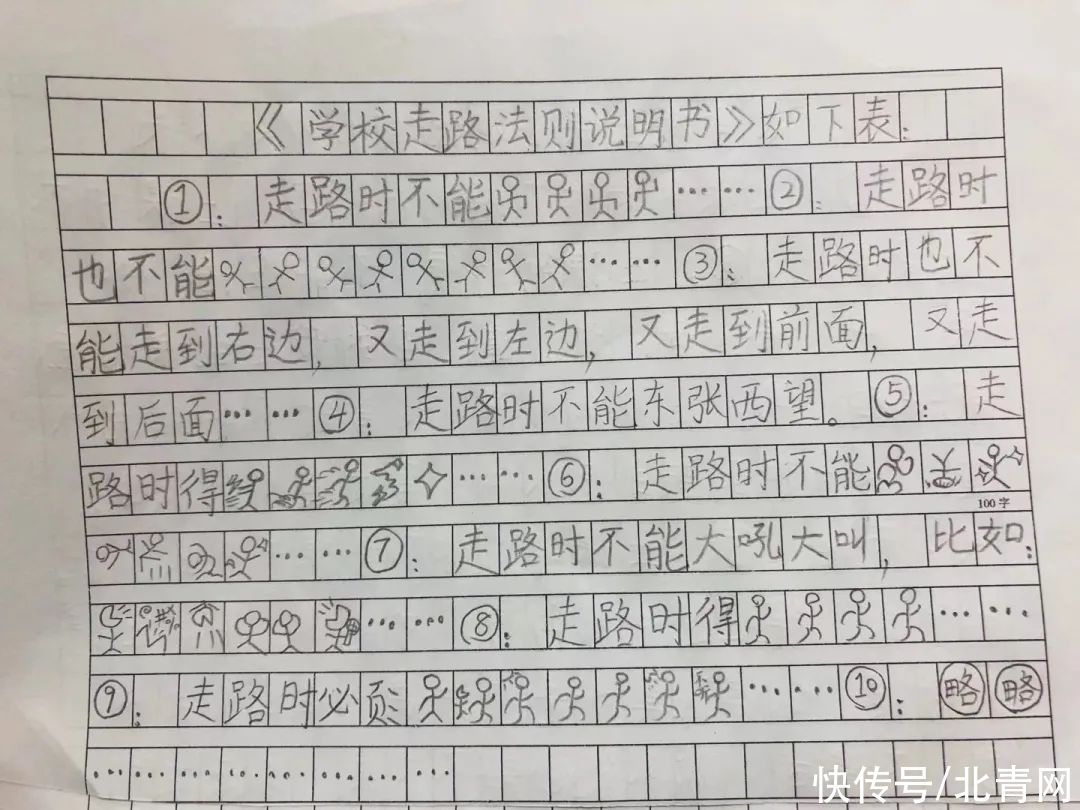 《学校走路法则说明书》如下表：
①：走路时不能……②：走路时
也不能……③：走路时也不
能走到右边，又走到左边，又走到前面，又走
到后面……④：走路时不能东张西望。⑤：走
路时得……⑥：走路时不能
100字
……⑦：走路时不能大吼大叫，比如：
……⑧：走路时得……
⑨：走路时必须……⑩：略略
………………………
快传号/北青网